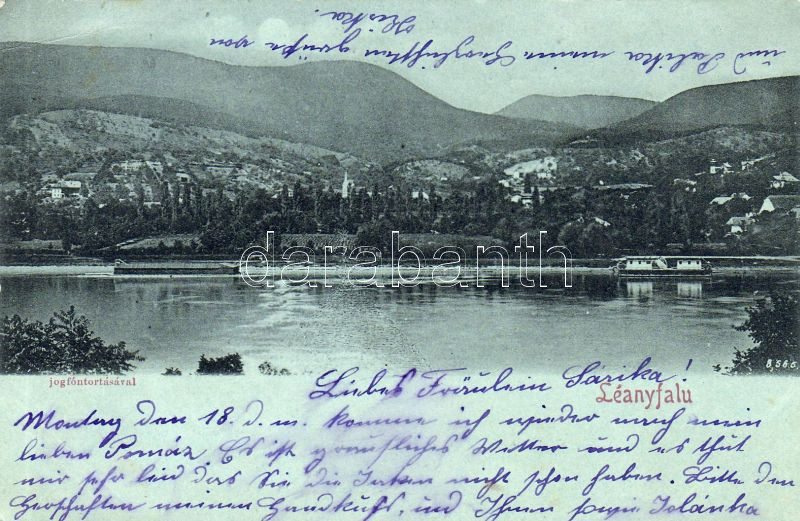 Liebes Fräulein Sárika!
Montag den 18. d. m. komme ich wieder nach mein
lieben Pomáz. Es ist greufliches Wetter und es thut
mir sehr leid das Sie die Jacken nicht schon haben. Bitte den
Herschaften meinen Handkuſs, und Ihnen sowie Ilánka
und Palika meine herzlichsten Grüße von
Riska.
Léanyfalu
jogfóntortásával
8565
darabanth